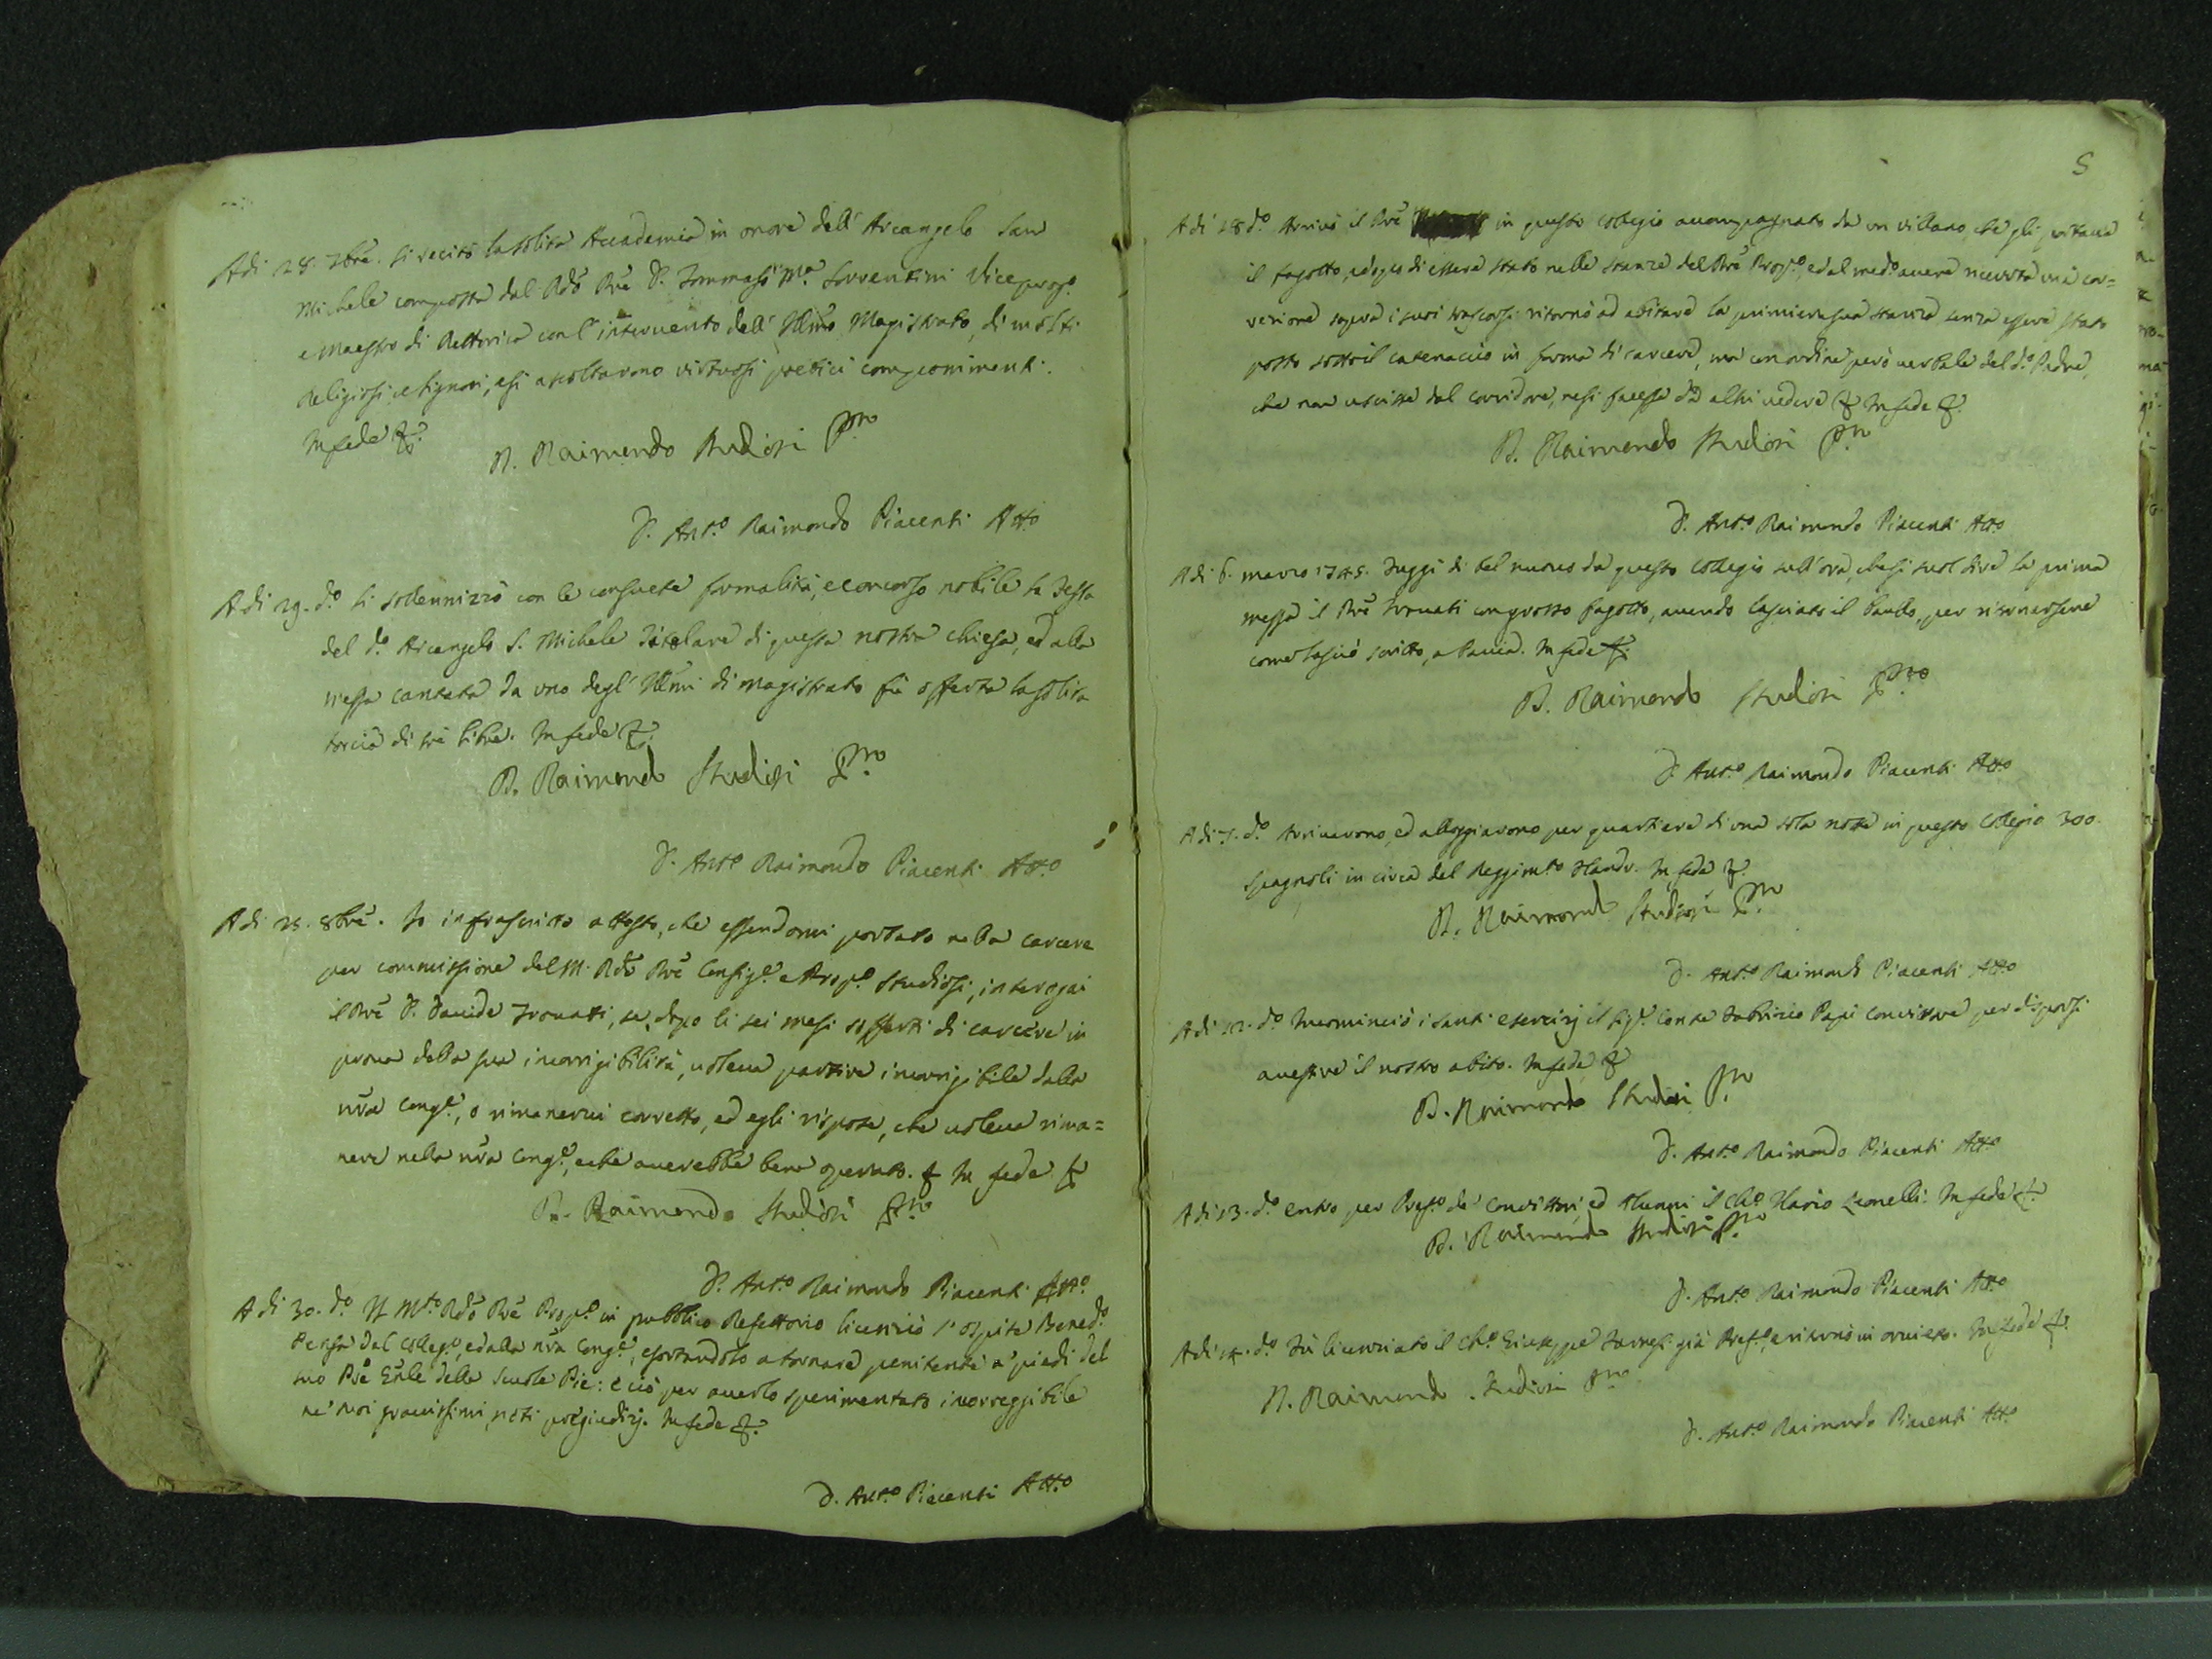 Adi 28. 7bre. si recitò la solita Accademia in onore dell' Arcangelo San
Michele composta dal Rdo Pre D. Tommaso Ma. Sorrentini Viceprop.o
e Maestro di Rettorica con l' intervento dell' Illmo Magistrato, di molti
Religiosi, e Signori, e si ascoltarono virtuosi poetici componimenti.
In fede &.
B. Raimondo Studiosi Pro
D. Ant.o Raimondo Piacenti Att.o
Adi 29. d.o si solennizzò con le consuete formalità, e concorso nobile la Festa
del d.o Arcangelo S. Michele Titolare di questa nostra Chiesa, ed alla
messa cantata da uno degl' Illmi di Magistrato fu offerta la solita
torcia di tre libre. In fede &.
B. Raimondo Studiosi Pro
D. Ant.o Raimondo Piacenti Att.o
Adi 25. 8bre. Io infrascritto attesto, che essendomi portato nella carcere
per commissione del M. Rdo Pre Consig.e e Prop.o Studiosi, interrogai
il Pre D. Davide Tronatti, se dopo li sei mesi sofferti di carcere in
prova della sua incorrigibilità, voleva partire incorrigibile dalla
nra Cong.e, o rimanervi corretto, ed egli rispose, che voleva rima=
nere nella nra Cong.e, e che averebbe bene operato. & In fede &
B. Raimondo Studiosi Pro
D. Ant.o Raimondo Piacenti Att.o
Adi 30. d.o Il M.to Rdo Pre Prop.o in pubblico Refettorio licenziò l' ospite Bened.o
dal Colleg.o, ed alla nra Cong.e, esortandolo a tornare penitente a' piedi del
suo Pre Gnle delle Scuole Pie: e ciò per averlo sperimentato incorreggibile
ne' suoi gravissimi, noti pregiudizj. In fede &.
D. Ant.o Piacenti Att.o
5
Adi 28 d.o Arrivò il Pre in questo Collegio accompagnato da un villano, che gli portava
il fagotto, e dopo di essere stato nelle stanze del Pre Prop.o, ed al med.o avere ricevuta una cor=
rezione sopra i suoi trascorsi ritornò ad abitare la primiera sua stanza senza essere stato
posto sotto il catenaccio in forma di carcere, ma con ordine però verbale del d.o Padre,
che non uscisse dal corridore, ne si facesse da altri vedere & In fede &.
B. Raimondo Studiosi Pro
D. Ant.o Raimondo Piacenti Att.o
Adi 6. marzo 1745. Fuggì di bel nuovo da questo Collegio sull' ora, che si suol dire la prima
messa il Pre Tronatti con grosso fagotto, avendo lasciato il per ritornarsene
come lasciò scritto, a Pavia. In fede &.
B. Raimondo Studiosi Pro
D. Ant.o Raimondo Piacenti Att.o
Adi 7. d.o Arrivarono, ed alloggiarono per quartiere di una sola notte in questo Collegio 300.
spagnoli in circa del Reggim.to In fede &.
B. Raimondo Studiosi Pro
D. Ant.o Raimondo Piacenti Att.o
Adi 12. d.o Incominciò i santi esercizj il Sig.r Conte Fabrizio Papi Convittore per disporsi
a vestire il nostro abito. In fede &
B. Raimondo Studiosi Pro
D. Ant.o Raimondo Piacenti Att.o
Adi 13. d.o Entrò per Pref.o de' Convittori, ed Alunni il Ch.o Ilario Leonelli. In fede &.
B. Raimondo Studiosi Pro
D. Ant.o Raimondo Piacenti Att.o
Adi 14. d.o Fu licenziato il Ch.o Giuseppe già Pref.o, e ritornò in Orvieto. In fede &.
B. Raimondo Studiosi Pro
D. Ant.o Raimondo Piacenti Att.o